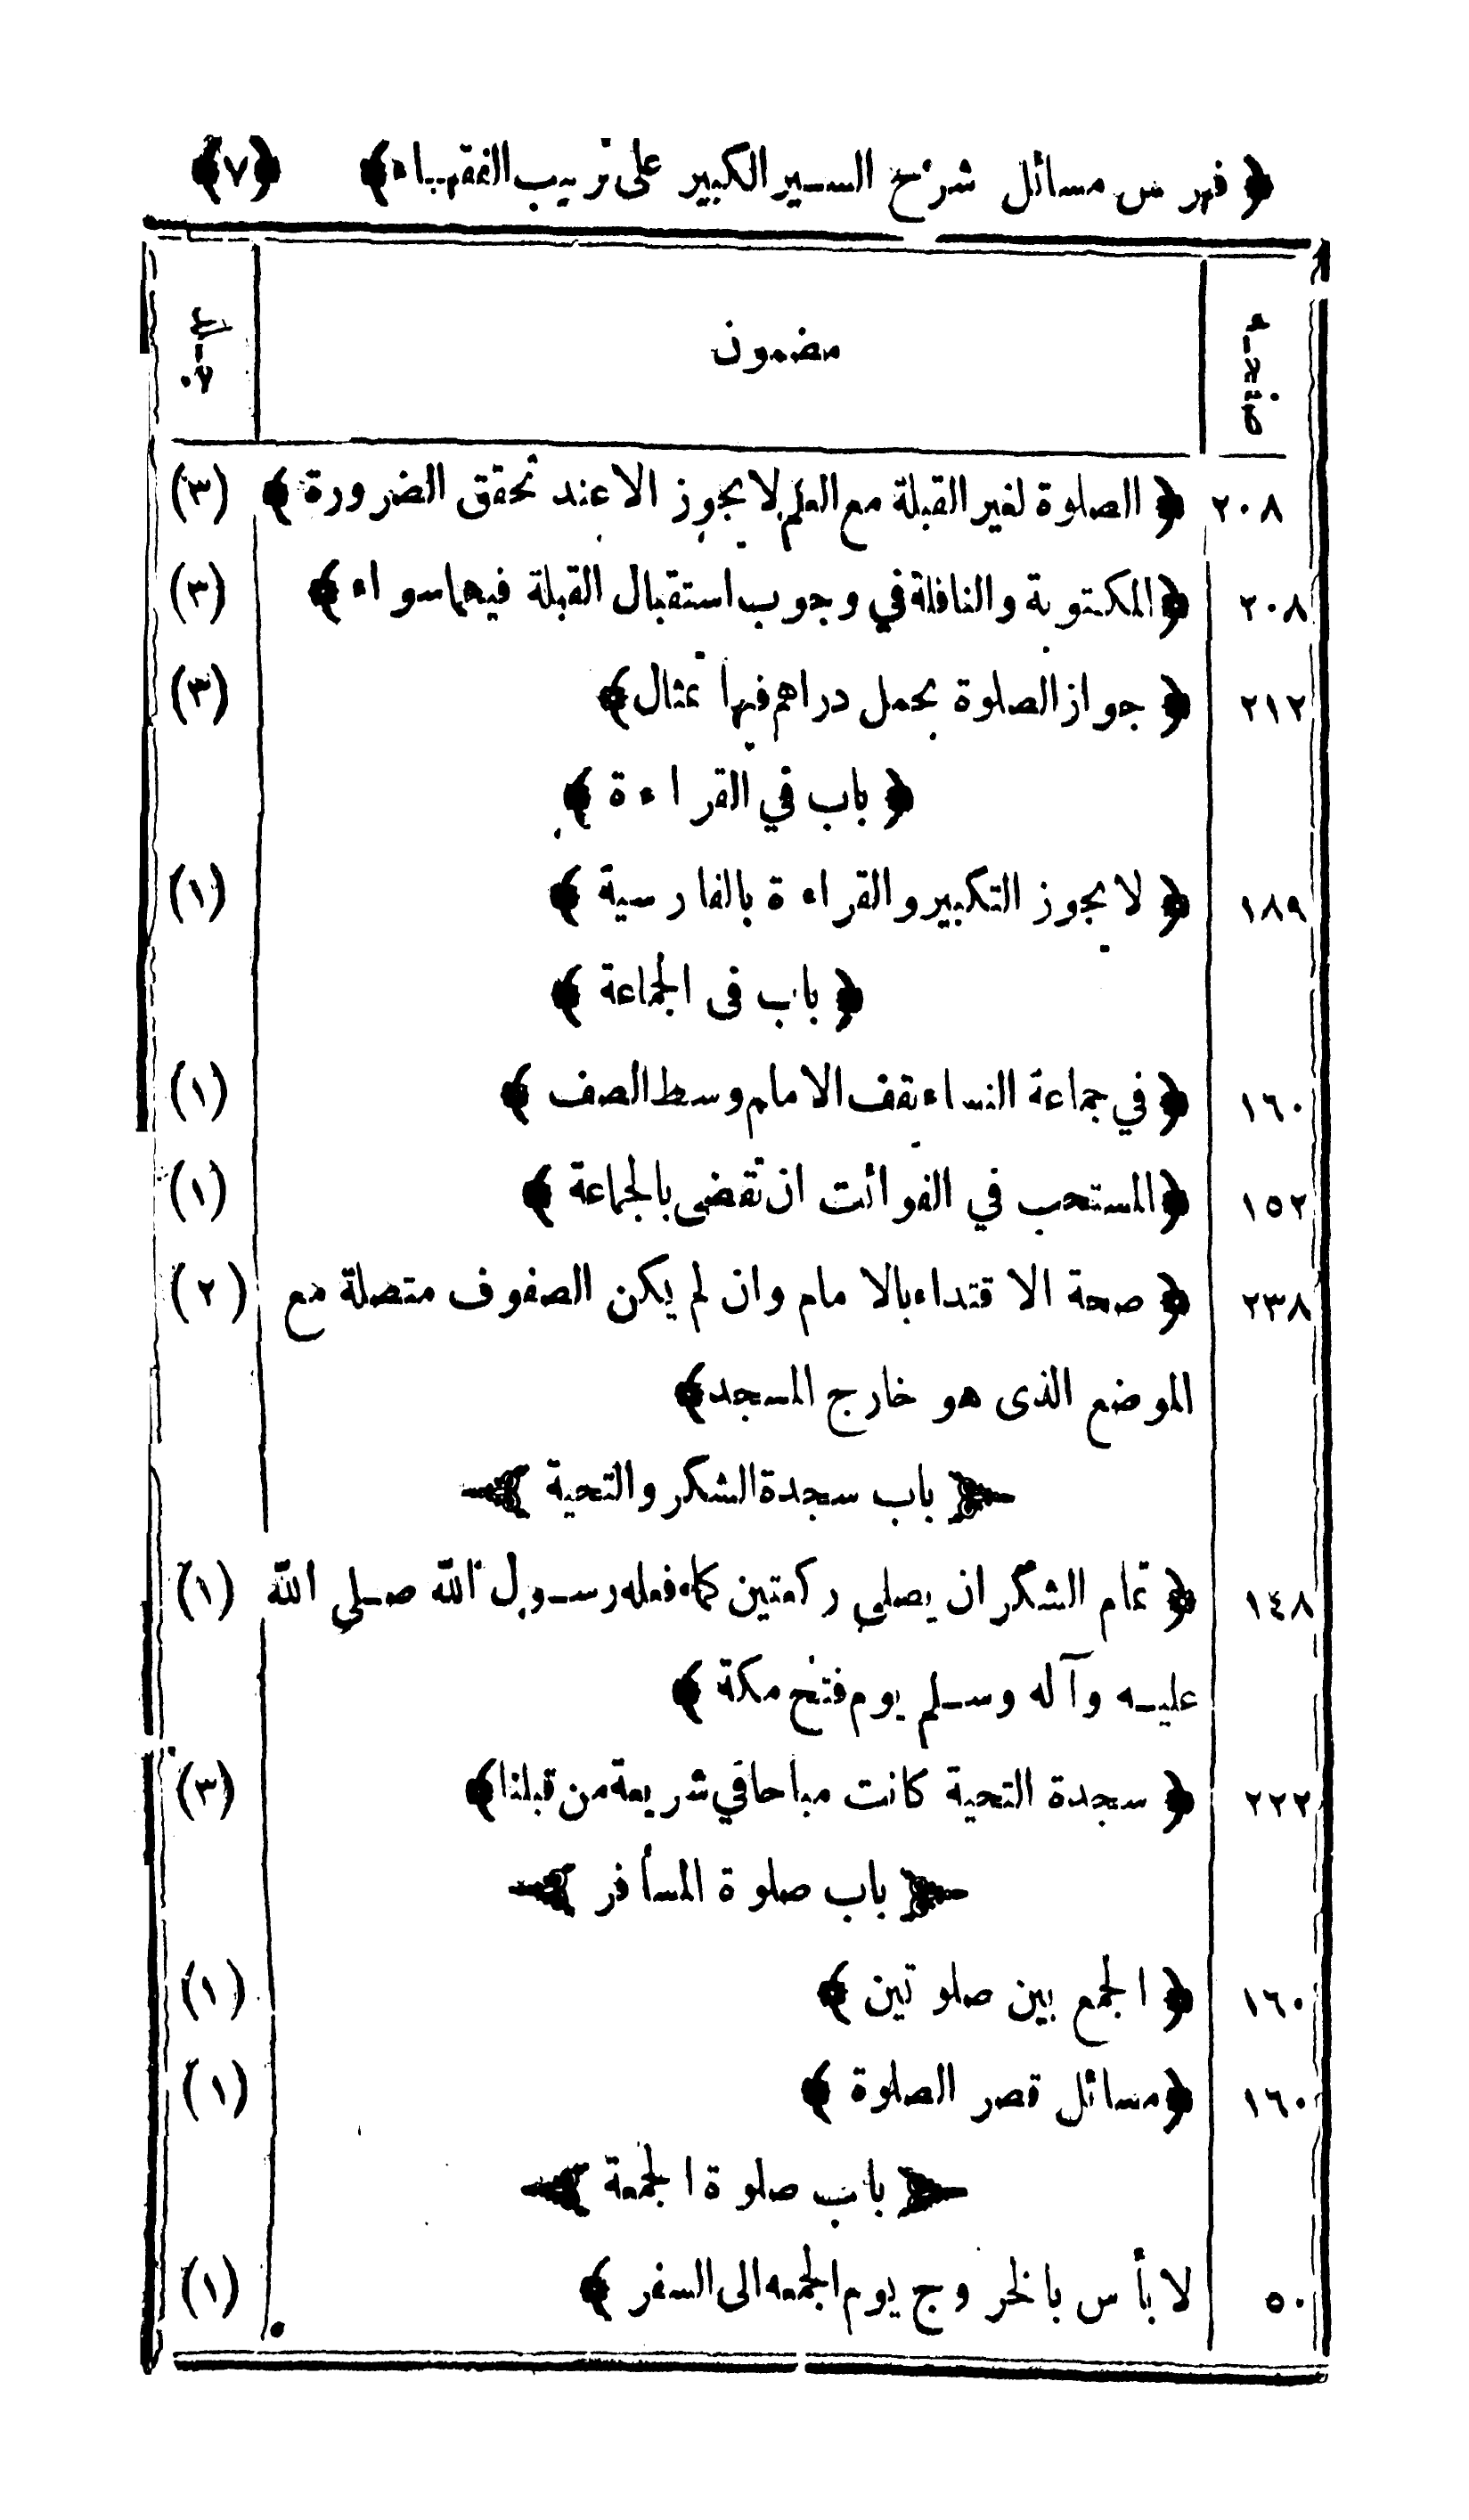 ﴿ فهرس مسائل شرح السير الكبير على ترتيب الفقهاء ﴾ ﴿٧﴾
صفحة مضمون جلد
٢٠٨ ﴿ الصلوة لغير القبلة مع العلم لا يجوز الا عند تحقق الضرورة ﴾ (٣)
٢٠٨ ﴿ المكتوبة والنافلة في وجوب استقبال القبلة فيهما سواء ﴾ (٣)
٢١٢ ﴿ جواز الصلوة بحمل دراهم فيها تمثال ﴾ (٣)
﴿ باب في القراءة ﴾
١٨٩ ﴿ لا يجوز التكبير والقراءة بالفارسية ﴾ (١)
﴿ باب فى الجماعة ﴾
١٦٠ ﴿ في جماعة النساء تقف الامام وسط الصف ﴾ (١)
١٥٢ ﴿ المستحب في الفوائت ان تقضى بالجماعة ﴾ (١)
٢٣٨ ﴿ صحة الاقتداء بالامام وان لم يكن الصفوف متصلة مع (٢)
الموضع الذى هو خارج المسجد ﴾
﴿ باب سجدة الشكر والتحية ﴾
١٤٨ ﴿ تمام الشكر ان يصلي ركعتين كما فعله رسول الله صلى الله (١)
عليه وآله وسلم يوم فتح مكة ﴾
٢٢٢ ﴿ سجدة التحية كانت مباحا في شريعة من قبلنا ﴾ (٣)
﴿ باب صلوة المسافر ﴾
١٦٠ ﴿ الجمع بين صلوتين ﴾ (١)
١٦٠ ﴿ مسائل قصر الصلوة ﴾ (١)
﴿ باب صلوة الجمعة ﴾
٥٠ لا بأس بالخروج يوم الجمعه الى السفر ﴾ (١)